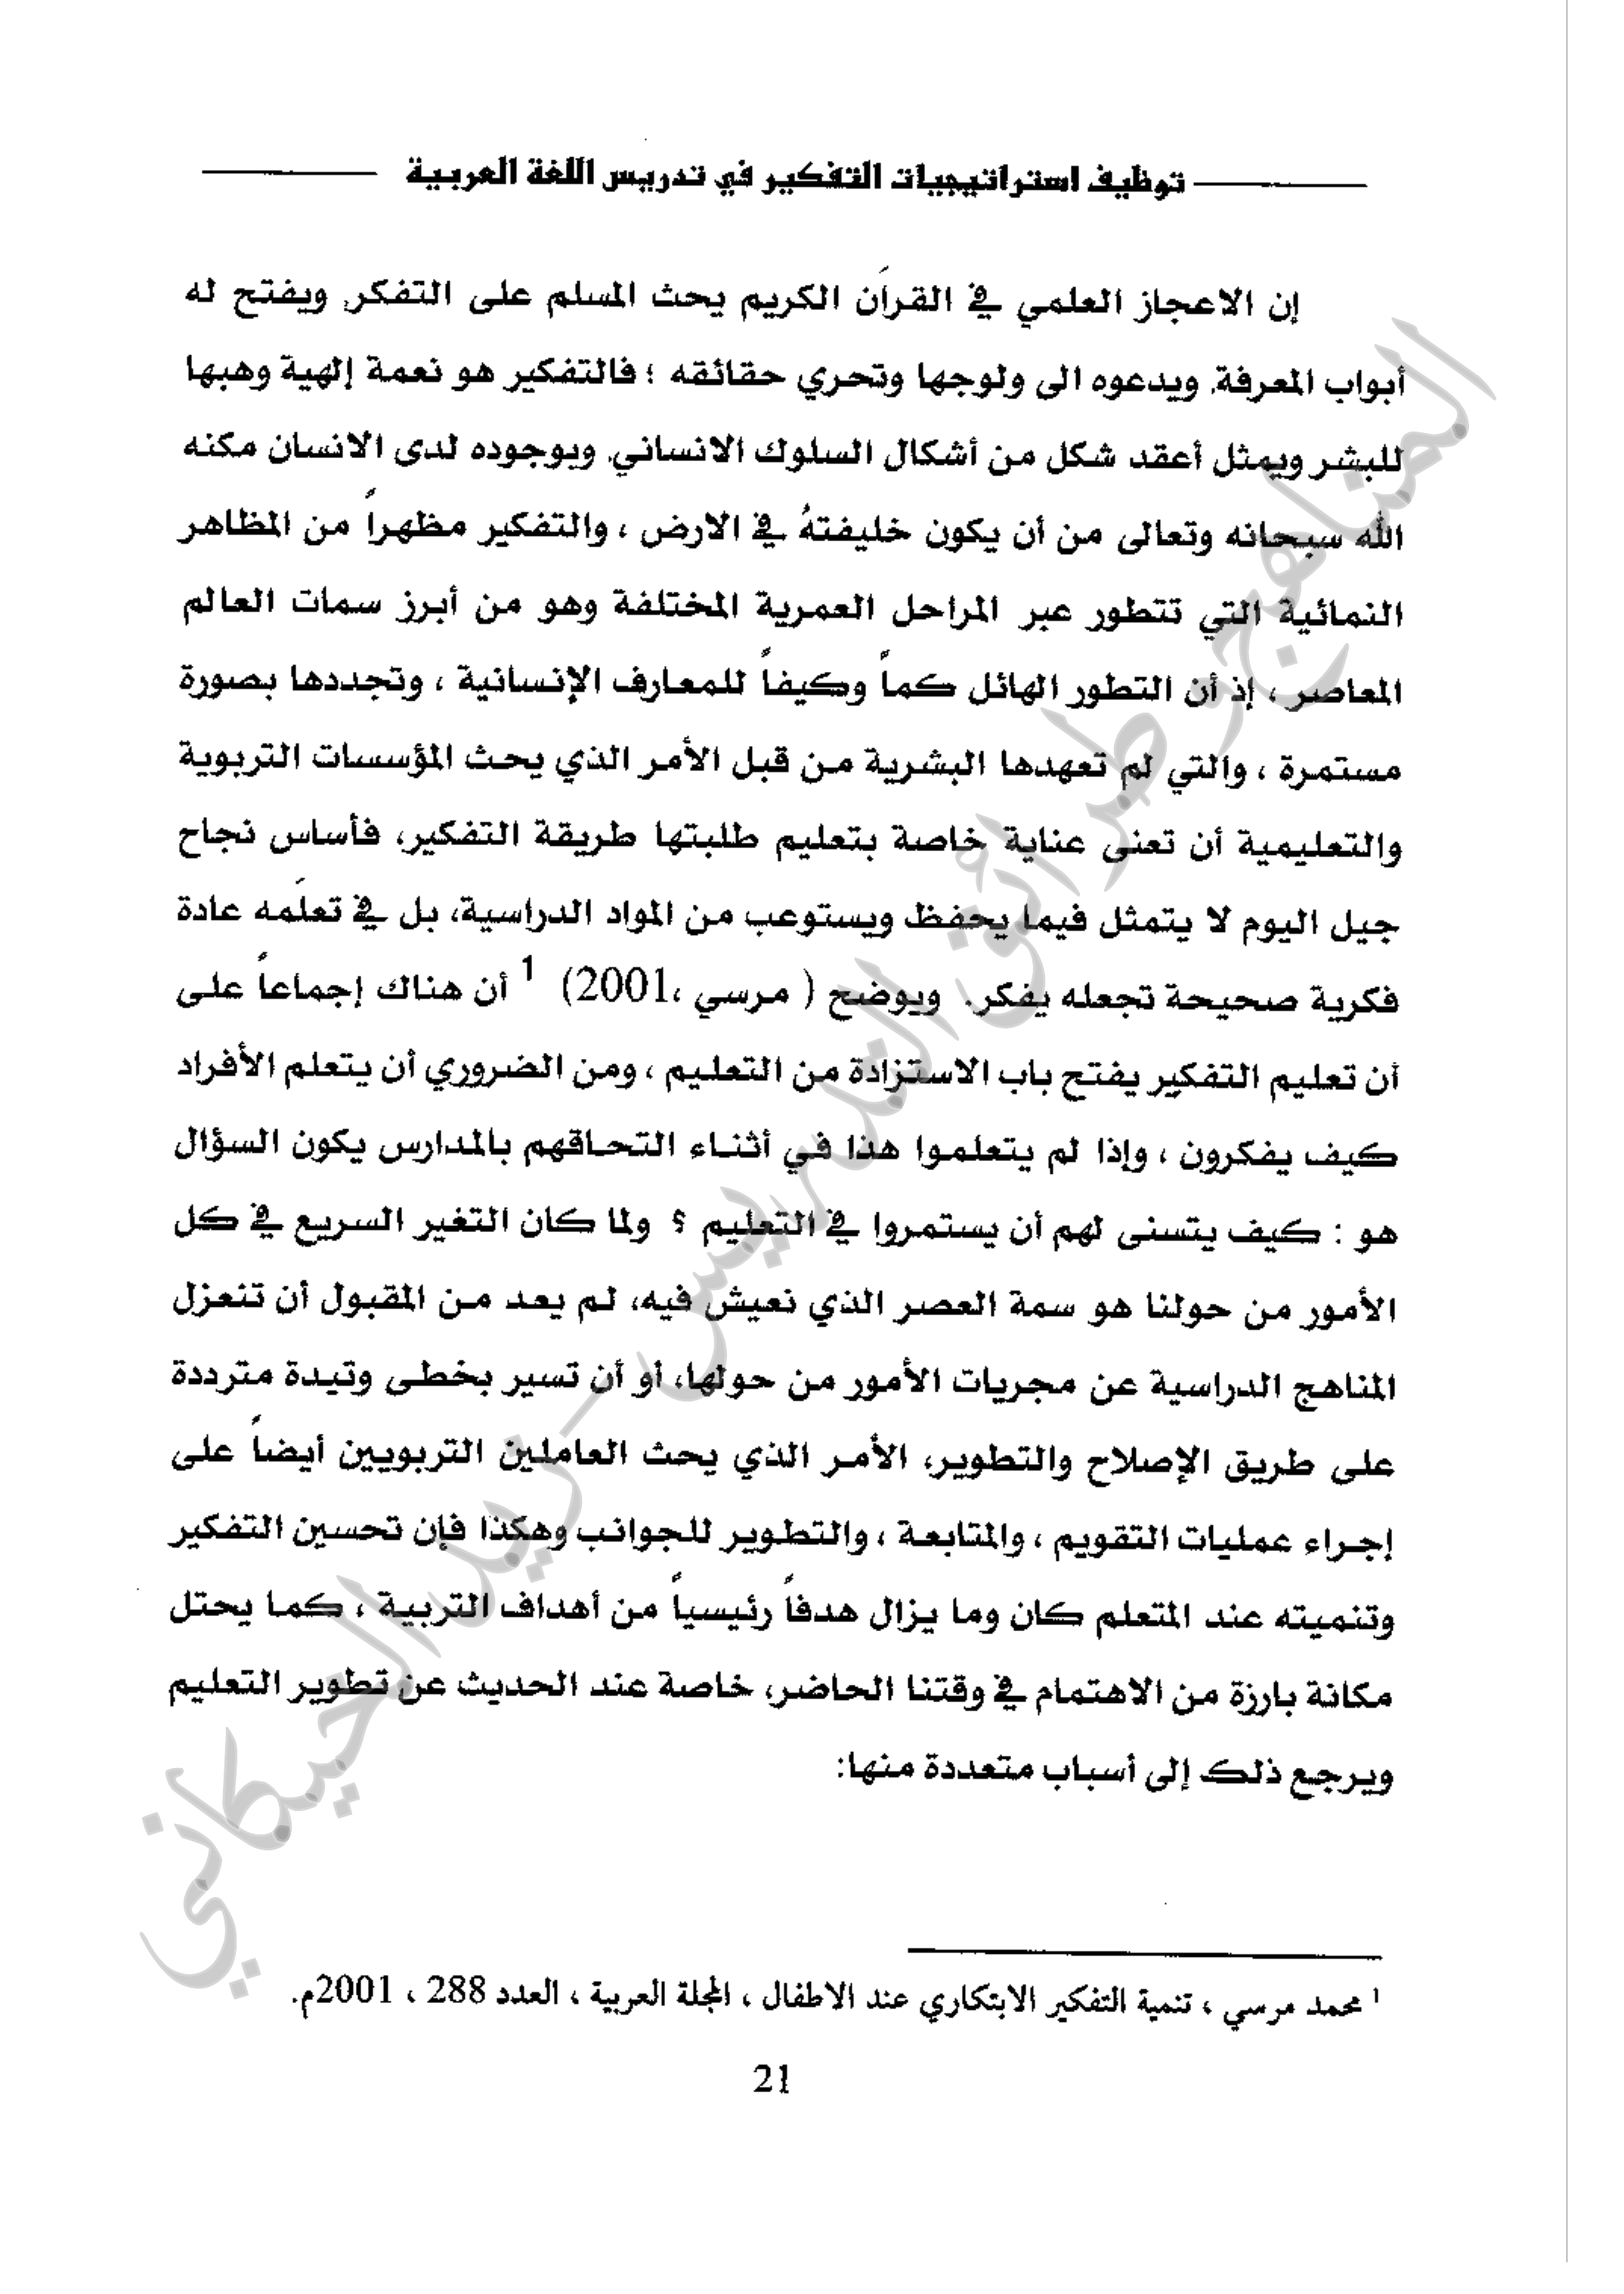 توظيف استراتيجيات التفكير في تدريس اللغة العربية
إن الاعجاز العلمي في القرآن الكريم يحث المسلم على التفكر, ويفتح له
أبواب المعرفة, ويدعوه الى ولوجها وتحري حقائقه ؛ فالتفكير هو نعمة إلهية وهبها
للبشر ويمثل أعقد شكل من أشكال السلوك الانساني, وبوجوده لدى الانسان مكنه
الله سبحانه وتعالى من أن يكون خليفتهُ في الارض ، والتفكير مظهراً من المظاهر
النمائية التي تتطور عبر المراحل العمرية المختلفة وهو من أبرز سمات العالم
المعاصر ، إذ أن التطور الهائل كماً وكيفاً للمعارف الإنسانية ، وتجددها بصورة
مستمرة ، والتي لم تعهدها البشرية من قبل الأمر الذي يحث المؤسسات التربوية
والتعليمية أن تعنى عناية خاصة بتعليم طلبتها طريقة التفكير، فأساس نجاح
جيل اليوم لا يتمثل فيما يحفظ ويستوعب من المواد الدراسية، بل في تعلَمه عادة
فكرية صحيحة تجعله يفكر. ويوضح ( مرسي ،2001) 1 أن هناك إجماعاً على
أن تعليم التفكير يفتح باب الاستزادة من التعليم ، ومن الضروري أن يتعلم الأفراد
كيف يفكرون ، وإذا لم يتعلموا هذا في أثناء التحاقهم بالمدارس يكون السؤال
هو : كيف يتسنى لهم أن يستمروا في التعليم ؟ ولما كان التغير السريع في كل
الأمور من حولنا هو سمة العصر الذي نعيش فيه، لم يعد من المقبول أن تنعزل
المناهج الدراسية عن مجريات الأمور من حولها، أو أن تسير بخطى وتيدة مترددة
على طريق الإصلاح والتطوير، الأمر الذي يحث العاملين التربويين أيضاً على
إجراء عمليات التقويم ، والمتابعة ، والتطوير للجوانب وهكذا فإن تحسين التفكير
وتنميته عند المتعلم كان وما يزال هدفاً رئيسياً من أهداف التربية ، كما يحتل
مكانة بارزة من الاهتمام في وقتنا الحاضر، خاصة عند الحديث عن تطوير التعليم
ويرجع ذلك إلى أسباب متعددة منها:
المناهج وطرائق التدريس - زيد الحيكاني
1 محمد مرسي ، تنمية التفكير الابتكاري عند الاطفال ، المجلة العربية ، العدد 288 ، 2001م.
21